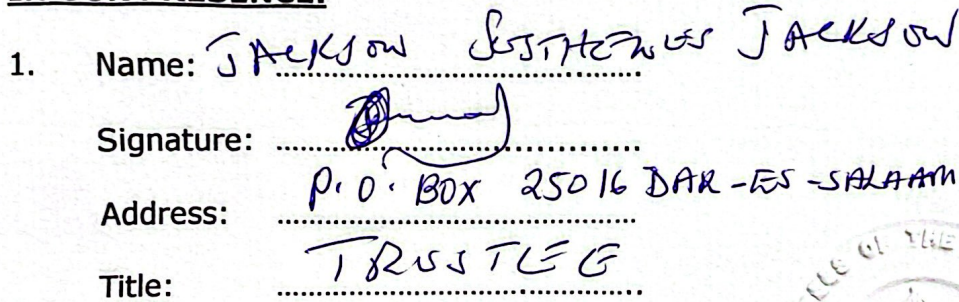 1. Name: JACKSON SOSTHENES JACKSON
Signature: ........................................
Address: P.O. BOX 25016 DAR-ES-SALAAM
Title: TRUSTEE
OF THE